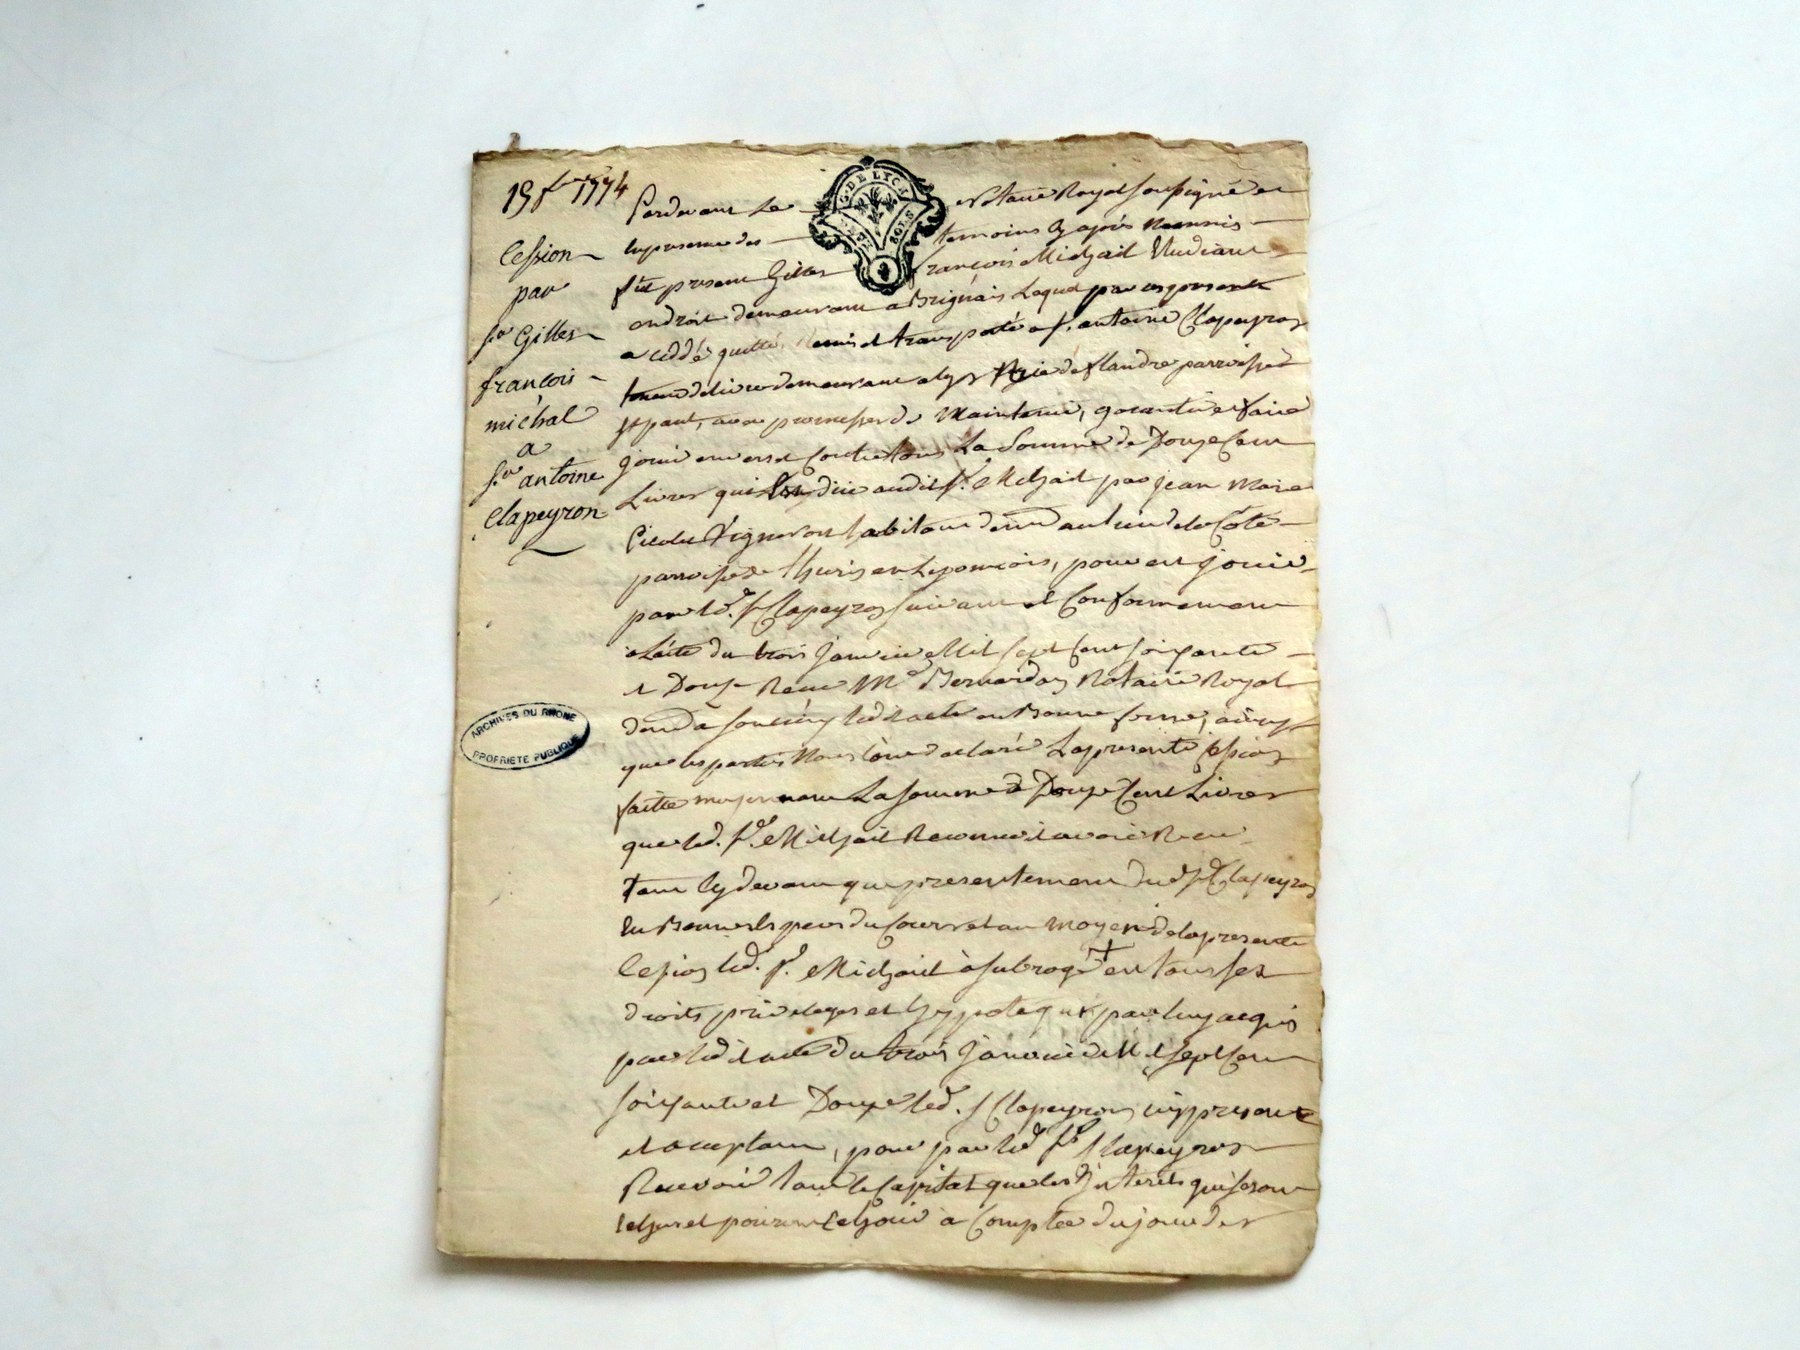 19 fer 1774
Cession
par
sr Gilles
françois
michal
a
sr antoine
Clapeyron
G. DE LYON
SOLS
ARCHIVES DU RHONE
PROPRIETE PUBLIQUE
Pardevant Le Notaire Royal soussigné et
en presence des temoins Cy apres Nommés
fut present Gilles françois Michail Etudiant
en droit demeurant a Brignais Lequel par ces presentes
a ceddé quitté, Remis et transporté a sr. antoine Clapeyron
demeurant a Lyon de flandre parroisse
st paul, avec promesse de Maintenir, garantir et faire
jouir envers et Contre tous La Somme de Douze Cent
Livres qui due audit sr. Michail par jean Marie
Vigneron habitant au lieu de la Côte
parroisse de thurin en Lyonnois, pour en jouir
par led. sr Clapeyron suivant et Conformement
a L'acte du trois Janvier Mil sept Cent soixante
et Douze Reçu Me Bernardon Notaire Royal
en Bonne forme, ainsy
que les parties Nous l'ont declaré La presente Cession
faitte moyennant La somme de Douze Cent Livres
que led. sr. Michail Reconnoit avoir Recu
tant Cy devant que presentement dud. sr Clapeyron
en Bonnes Especes du Cours et au moyen de la presente
Cession led. sr. Michail a subrogé + en tous ses
droits privileges et hypoteques par luy acquis
par led. acte du trois Janvier Mil sept Cent
soixante et Douze led. sr Clapeyron icy present
et acceptant, pour par led. sr Clapeyron
Recevoir tant le Capital que les Interets qui seront
echus et pourront echoir a Compter du jour de